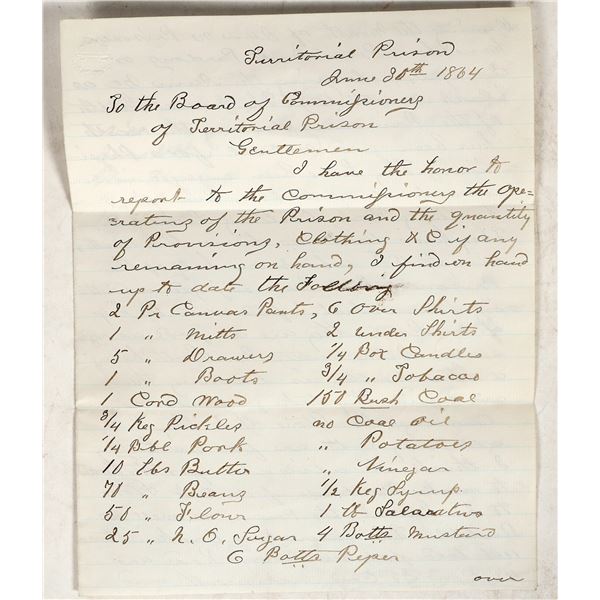 Territorial Prison
June 30th 1864
To the Board of Commissioners
of Territorial Prison
Gentlemen
I have the honor to
report to the Commissioners the ope=
=rating of the Prison and the quantity
of Provisions, Clothing &C if any
remaining on hand, I find on hand
up to date the Following
2 Pr Canvas Pants, 6 Over Shirts
1 " Mitts 2 under Shirts
5 " Drawers 1/4 Box Candles
1 " Boots 3/4 " Tobacco
1 Cord Wood 150 Bush Coal
3/4 Keg Pickles no Coal Oil
1/4 Bbl Pork " Potatoes
10 lbs Butter " Vinegar
70 " Beans 1/2 Keg Syrup
50 " Flour 1 lb Salaratus
25 " N.O. Sugar 4 Botts Mustard
6 Botts Peper
over